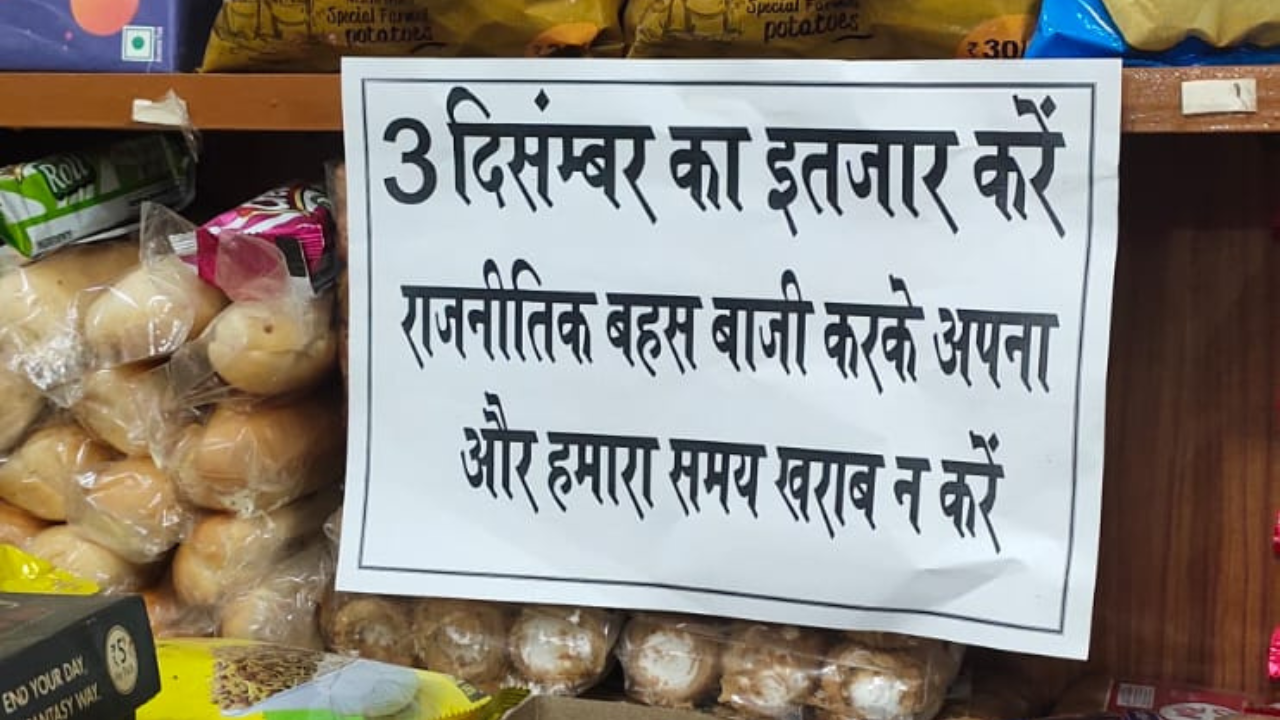 Special Farmed
potatoes
Special Farmed
potatoes
₹30/
3 दिसंम्बर का इतजार करें
राजनीतिक बहस बाजी करके अपना
और हमारा समय खराब न करें
Roll
₹5
END YOUR DAY,
ANTASY WAY.